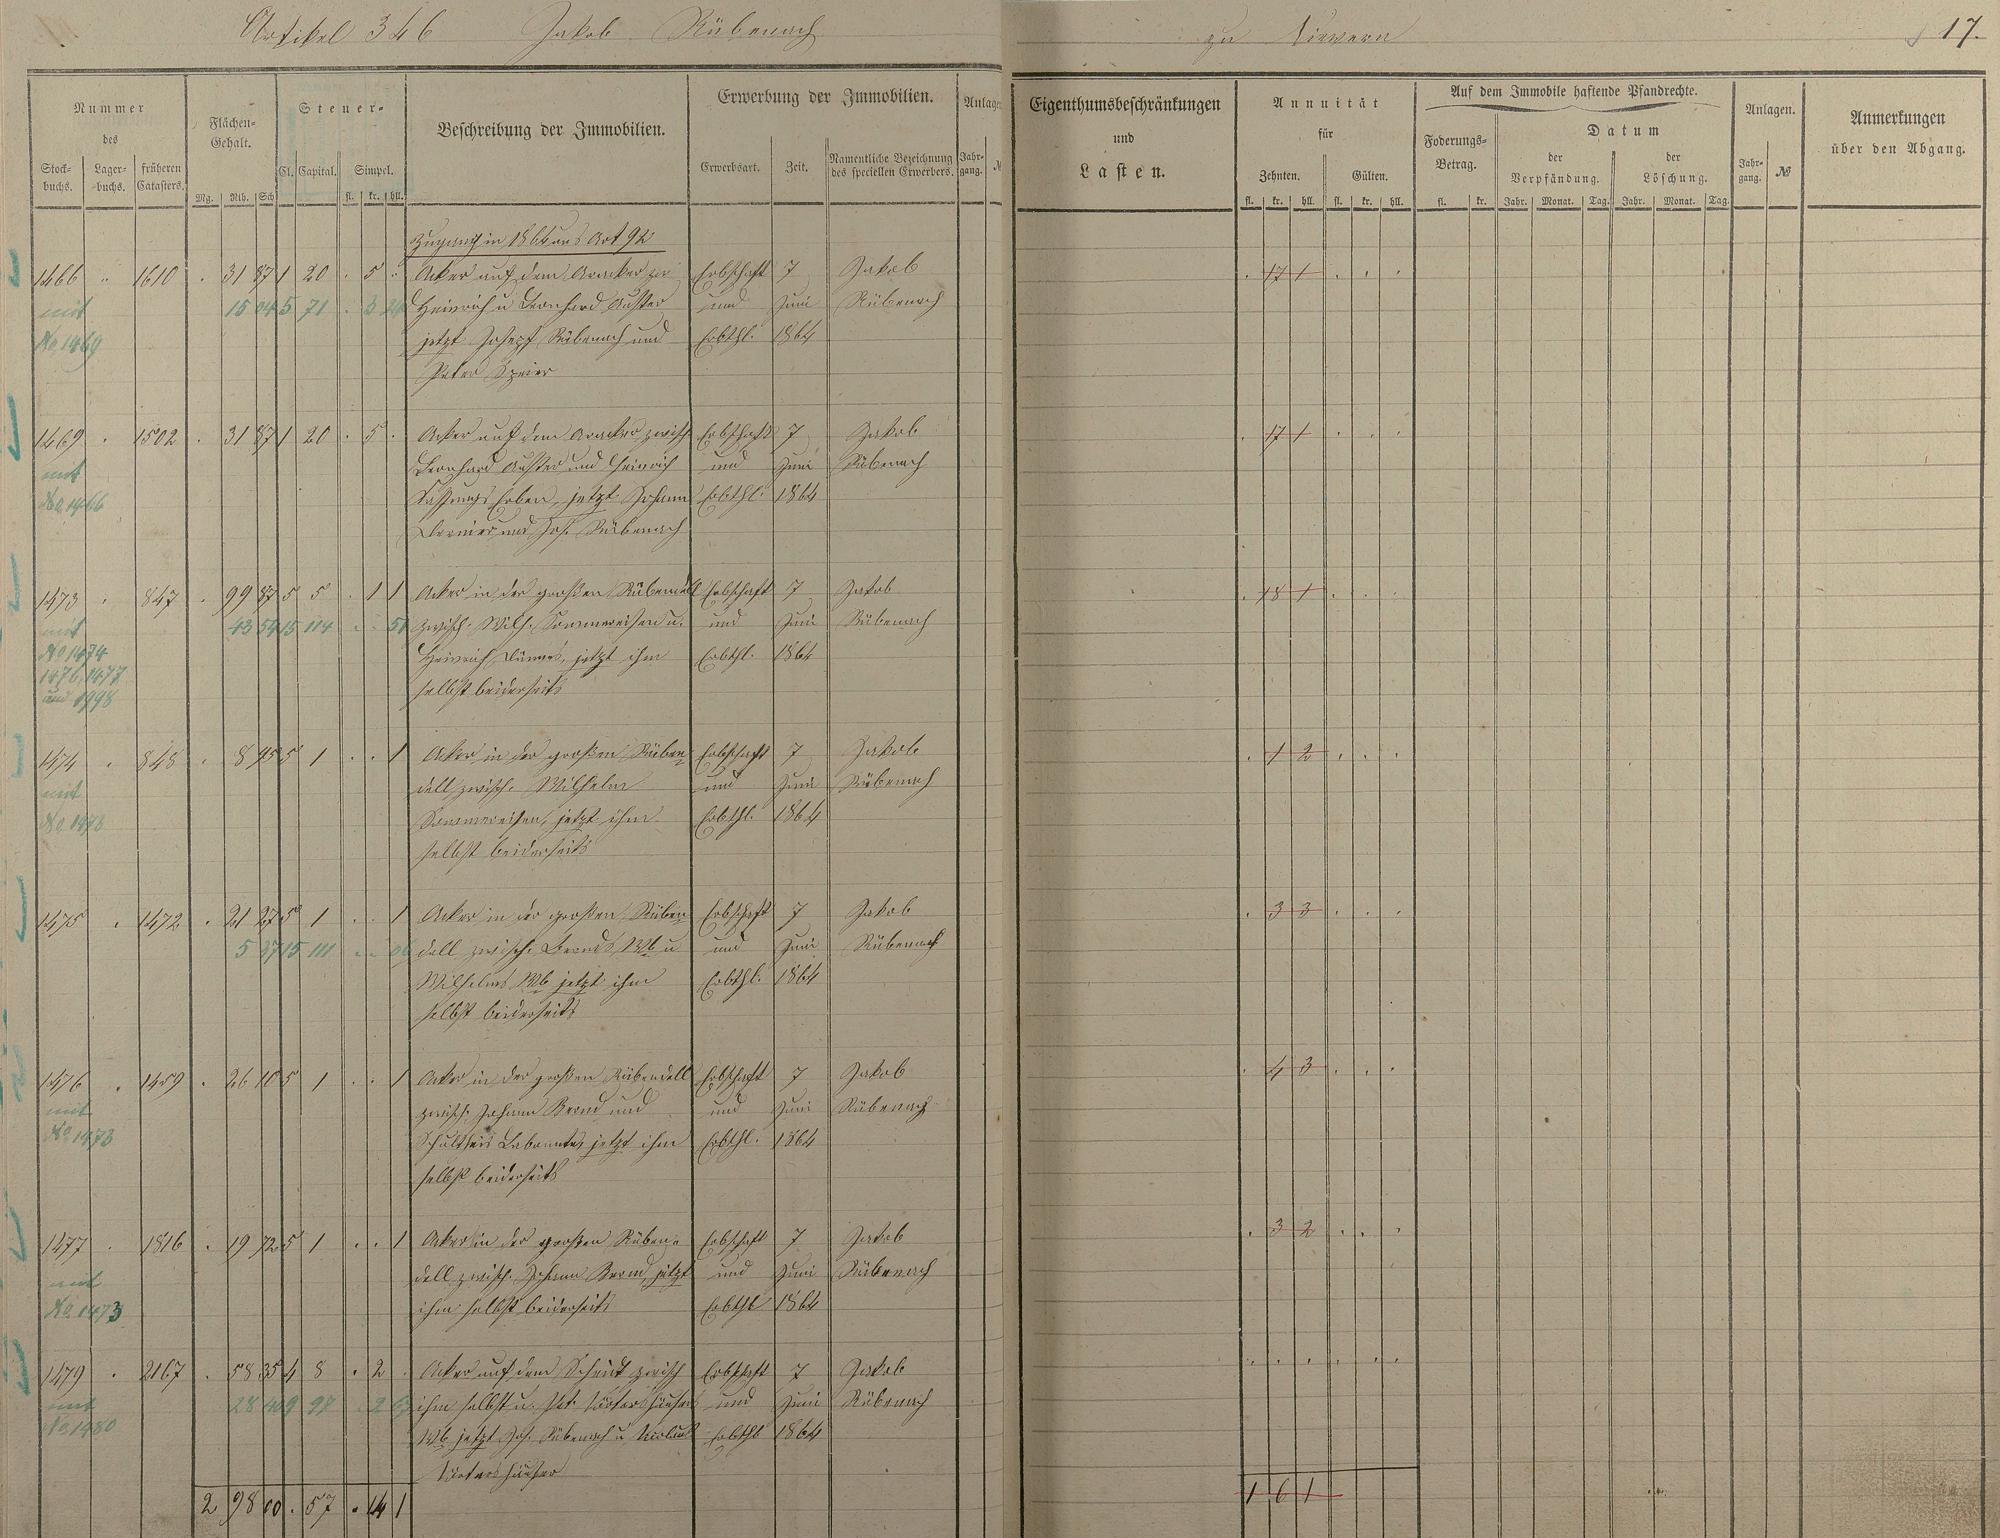 Artikel 346 Jakob Rübenach zu Nievern 17.
Nummer
des
Stock-
buchs.
Lager-
buchs.
früheren
Catasters.
Flächen-
Gehalt.
Mg. Rth. Sch
Steuer-
Cl. Capital. Simpel.
fl. kr. hll.
Beschreibung der Immobilien.
Erwerbung der Immobilien.
Erwerbsart. Zeit.
Namentliche Bezeichnung
des speciellen Erwerbers.
Anlagen
Jahr-
gang. №
Eigenthumsbeschränkungen
und
Lasten.
Annuität
für
Zehnten. Gülten.
fl. kr. hll. fl. kr. hll.
Auf dem Immobile haftende Pfandrechte.
Foderungs-
Betrag.
fl. kr.
Datum
der
Verpfändung.
der
Löschung.
Jahr. Monat. Tag. Jahr. Monat. Tag.
Anlagen.
Jahr-
gang. №
Anmerkungen
über den Abgang.
Zugang in 1864 aus Art 92
1466 " 1610 . 31 87 1 20 . 5 . Acker auf dem Aracker zw Erbschaft 7 Jakob . 17 1 . . .
mit 15 04 5 71 . 3 Heinrich u Leonhard Auster und Juni Rübenach
No 1469 jetzt Josepf Rübenach und Erbthl. 1864
Peter Speier
1469 . 1502 . 31 87 1 20 . 5 . Acker auf dem Aracker zwisch Erbschaft 7 Jakob . 17 1 . . .
mit Leonhard Auster und Heinrich und Juni Rübenach
No 1466 Erben, jetzt Johann Erbthl. 1864
und Jos. Rübenach
1473 . 847 . 99 87 5 5 . 1 1 Acker in der großen Rübendell Erbschaft 7 Jakob . 18 1 . . .
mit 43 54 15 114 . . 51 zwisch. Wilh. Sommereisen u. und Juni Rübenach
No 1474 Heinrich jetzt ihm Erbthl. 1864
1476, 1477 selbst beiderseits
und 1998
1474 . 848 . 8 95 5 1 . . 1 Acker in der großen Rüben- Erbschaft 7 Jakob . 1 2 . . .
mit dell zwisch. Wilhelm und Juni Rübenach
No 1473 Sommereisen, jetzt ihm Erbthl. 1864
selbst beiderseits
1475 . 1472 . 21 27 5 1 . . 1 Acker in der großen Rüben- Erbschaft 7 Jakob . 3 3 . . .
5 37 15 111 . . dell zwisch. Bernds Wb u und Juni Rübenach
Wilhelms Wb jetzt ihm Erbthl. 1864
selbst beiderseits
1476 . 1459 . 26 10 5 1 . . 1 Acker in der großen Rübendell Erbschaft 7 Jakob . 4 3 . . .
mit zwisch. Johann Bernd und und Juni Rübenach
No 1473 Schultheis jetzt ihm Erbthl. 1864
selbst beiderseits
1477 . 1816 . 19 72 5 1 . . 1 Acker in der großen Rüben- Erbschaft 7 Jakob . 3 2 . . .
mit dell zwisch. Johann Bernd, jetzt und Juni Rübenach
No 1473 ihm selbst beiderseits Erbthl 1864
1479 . 2167 . 58 35 4 8 . 2 . Acker auf dem Scheidt zwisch Erbschaft 7 Jakob . . . . . .
mit 28 9 97 . 2 ihm selbst u. Pet. und Juni Rübenach
No 1480 Wb jetzt Jos. Rübenach u Nicolaus Erbthl 1864
2 98 00 . 57 . 14 1 1 6 1